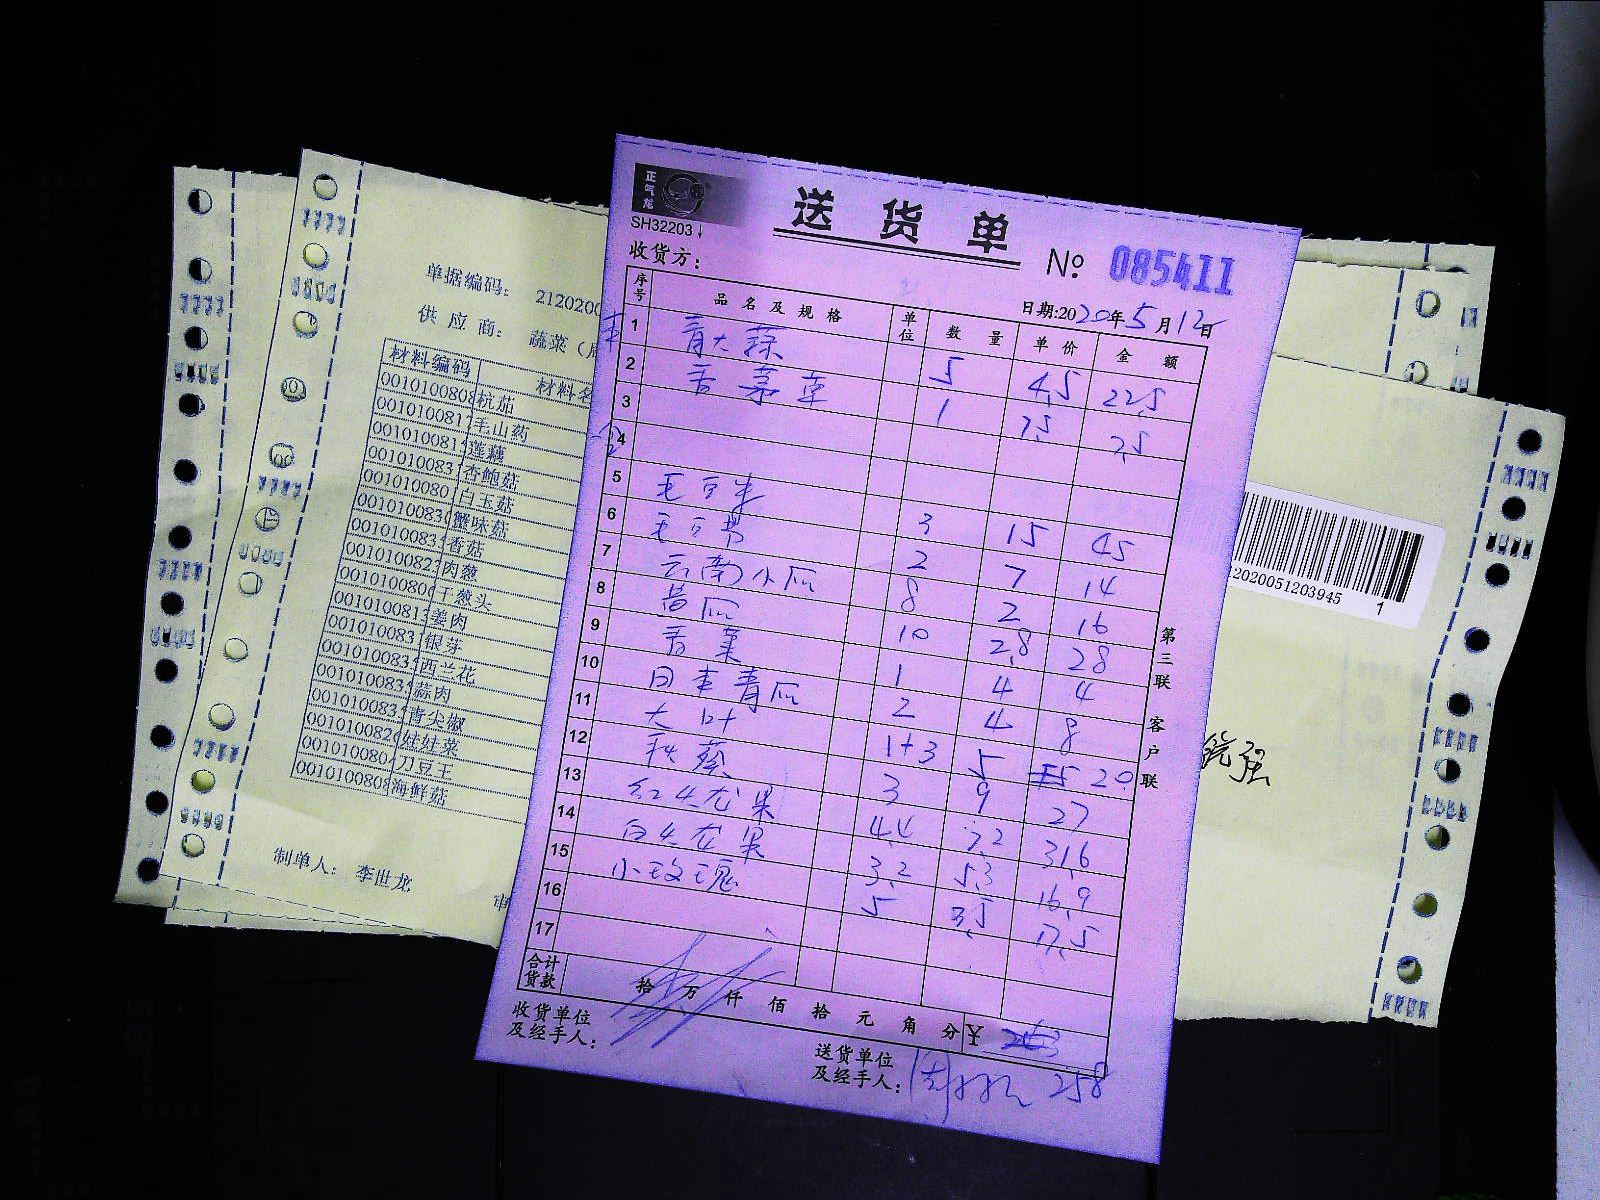 正气龙
SH32203
送货单
№ 085411
收货方：
日期:2020年5月12日
序号 品名及规格 单位 数量 单价 金额
1 青大蒜 5 4.5 22.5
2 香茅草 1 7.5 7.5
3
4
5 毛豆米 3 15 45
6 毛豆节 2 7 14
7 云南小瓜 8 2 16
8 黄瓜 10 2.8 28
9 香菜 1 4 4
10 日本青瓜 2 4 8
11 大叶 1+3 5 20
12 秋葵 3 9 27
13 红火龙果 4.4 7.2 31.6
14 白火龙果 3.2 5.3 16.9
15 小玫瑰 5 3.5 17.5
16
17
合计货款 拾 万 仟 佰 拾 元 角 分 ¥
258
收货单位及经手人：
送货单位及经手人：
第三联 客户联
单据编码： 212020
供 应 商： 蔬菜（
材料编码 材料名
0010100808 杭茄
001010081 毛山药
001010081 莲藕
001010083 杏鲍菇
001010080 白玉菇
001010083 蟹味菇
001010083 香菇
001010082 肉葱
001010080 干葱头
001010081 姜肉
001010083 银芽
001010083 西兰花
001010083 蒜肉
001010083 青尖椒
001010082 娃娃菜
001010080 刀豆王
0010100808 海鲜菇
制单人： 李世龙
审
2020051203945 1
强